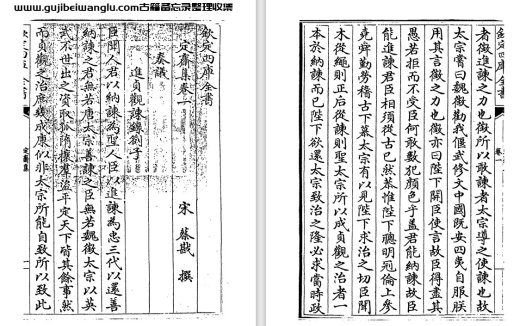 www.gujibeiwanglu.com古籍备忘录整理收集
欽定四庫全書
定齋集卷一
宋 蔡戡 撰
奏議
進貞觀諫錄劄子
臣聞人君以納諫為聖人臣以進諫為忠三代以還善
納諫之君無若唐太宗善諫之臣無若魏徵太宗以英
武不世之資取孤隋攘羣盜平定天下皆其餘事然
而貞觀之治庶幾成康似非太宗所能自致所以致此
欽定四庫全書
卷一
者徵進諫之力也徵所以敢諫者太宗導之使諫也故
太宗嘗曰魏徵勸我偃武修文中國既安四夷自服朕
用其言徵之力也徵亦曰陛下開臣使言故臣得盡其
愚若拒而不受臣何敢數犯顔色乎葢君能納諫故臣
諫君臣相須從古已然恭惟陛下聰明冠倫上參
堯舜勤勞稽古下慕太宗有以見陛下求治之切臣聞
木從繩則正后從諫則聖太宗所以成貞觀之治者一
本於納諫而已陛下欲還太宗致治之隆必求當時政